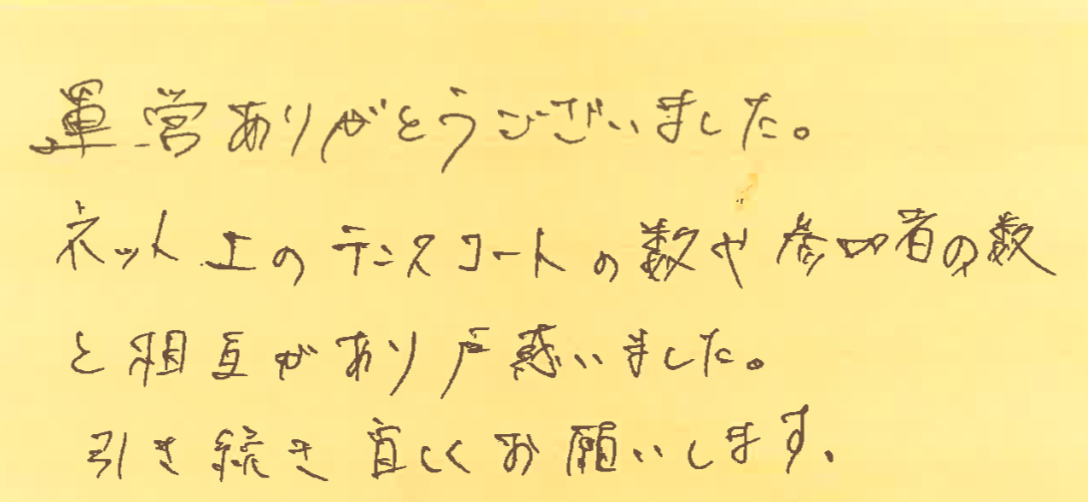 運営ありがとうございました。
ネット上のテニスコートの数や参加者の数
と相互があり戸惑いました。
引き続き宜しくお願いします。